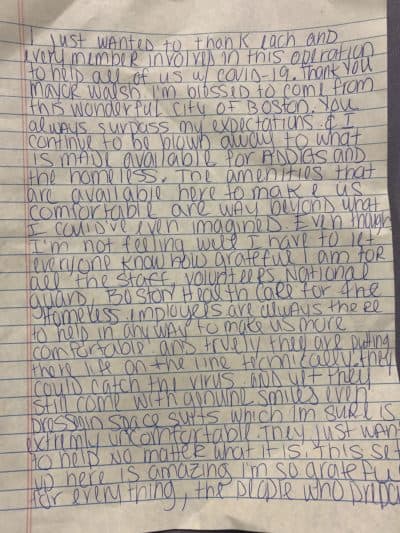 I just wanted to thank each and
every member involved in this operation
to help all of us w/ covid-19. Thank you
Mayor Walsh I'm blessed to come from
this wonderful city of Boston. You
always surpass my expectations & I
continue to be blown away to what
is made available for Addicts and
the homeless. The amenities that
are available here to make us
comfortable are way beyond what
I could've even imagined. Even though
I'm not feeling well I have to let
everyone know how grateful I am for
all the staff, volunteers, National
guard, Boston Health Care for the
Homeless. employers are always there
to help in any way to make us more
comfortable and truely they are putting
there life on the line termically they
could catch the virus and yet they
still come with genuine smiles even
in space suits which I'm sure is
extremly uncomfortable. They just want
to help no matter what it is. This set
up here is amazing I'm so grateful
for everything, the people who